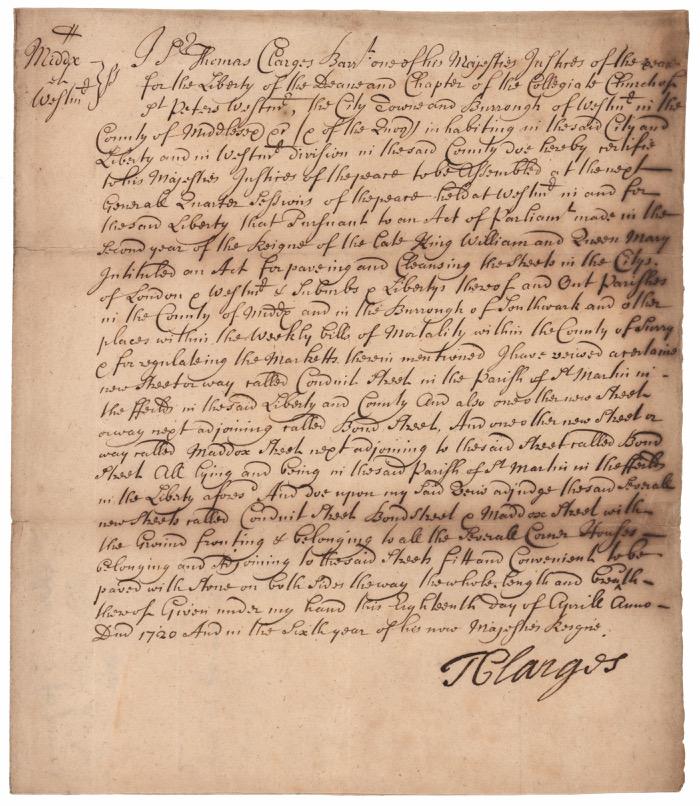 Middx
et
Westmr
ss
I Sr Thomas Clarges Barrt one of his Majesties Justices of the peace
for the Liberty of the Deane and Chapter of the Collegiate Church of
St Peters Westmr, the City Towne and Burrough of Westmr in the
County of Middlesex & of the inhabiting in the said City and
Liberty and in Westmr division in the said County doe hereby certifie
to his Majesties Justices of the peace to be Assembled at the next
Generall Quarter Sessions of the peace held at Westmr in and for
the said Liberty that Pursuant to an Act of Parliamt made in the
Second year of the Reigne of the late King William and Queen Mary
Intituled an Act for paveing and Cleansing the Streets in the Citys
of London & Westmr & Suburbs & Libertys thereof and Out Parishes
in the County of Middx and in the Burrough of Southwark and other
places within the Weekly bills of Mortality within the County of Surry
& for regulateing the Marketts therein mentioned I have veiwed a certaine
new Street or way called Conduit Street in the Parish of St Martin in
the ffeilds in the said Liberty and County And also one other new Street
or way next adjoining called Bond Street, And one other new Street or
way called Maddox Street next adjoining to the said Street called Bond
Street All lying and being in the said Parish of St Martin in the ffeilds
in the Liberty aforesd And doe upon my said Veiw adjudge the said Severall
new Streets called Conduit Street Bond Street & Maddox Street with
the Ground fronting & belonging to all the Severall Corner Houses
belonging and Adjoining to the said Streets fitt and Convenient to be
paved with Stone on both Sides the way the whole length and breadth
thereof Given under my hand this Eighteenth day of Aprill Anno
Dni 1720 And in the Sixth year of his now Majesties Reigne.
TClarges